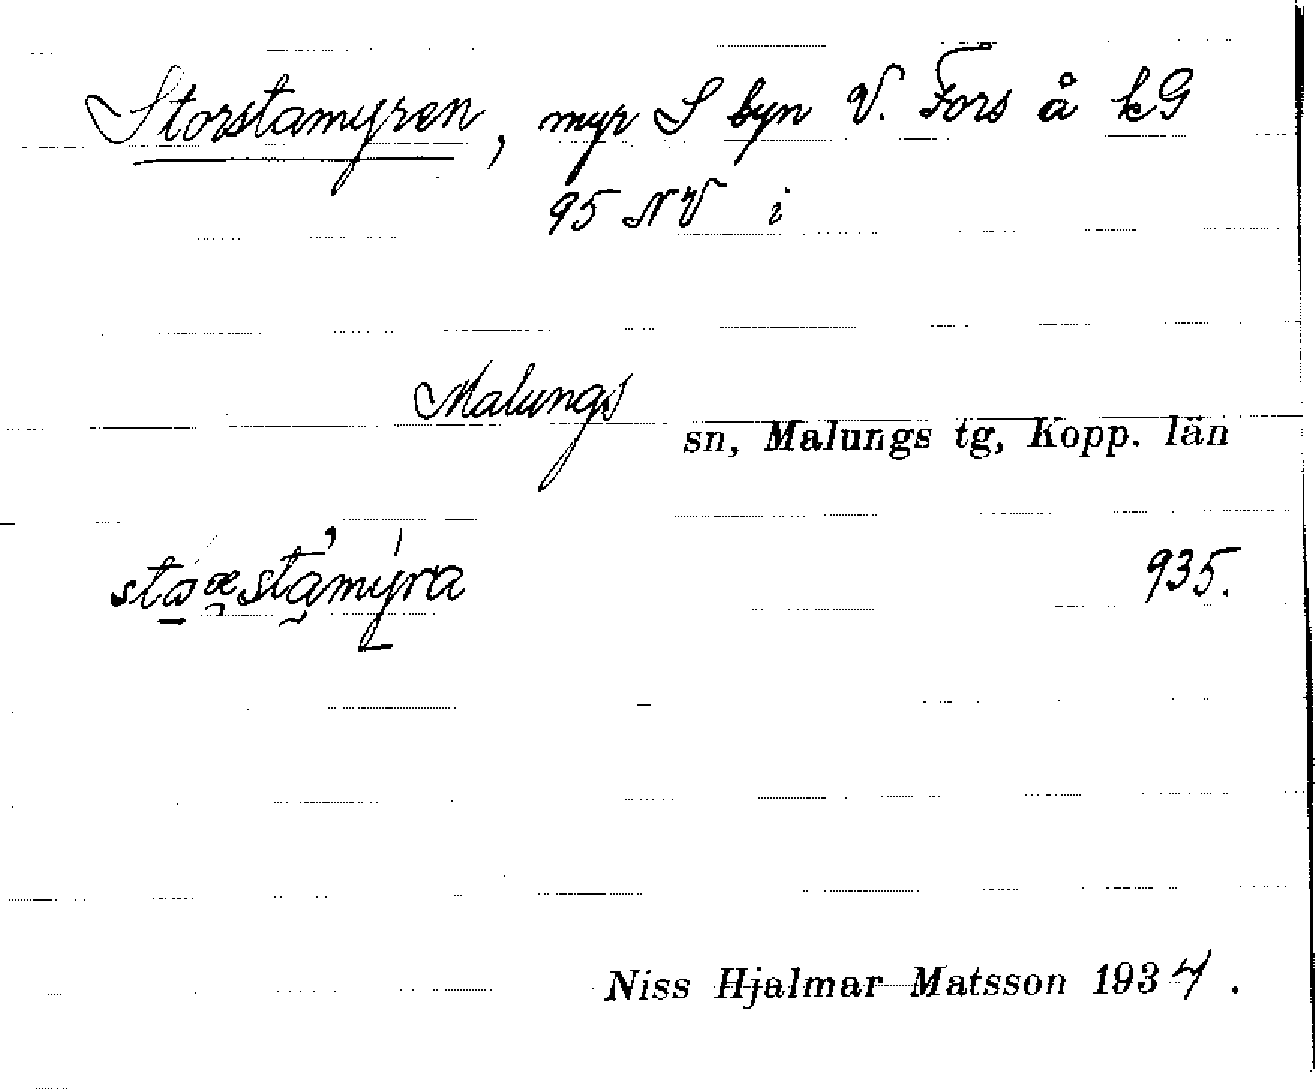 Storstamyren, myr S byn V. Fors å kG
95 NV i
Malungs sn, Malungs tg, Kopp. län
935.
Niss Hjalmar Matsson 1934.